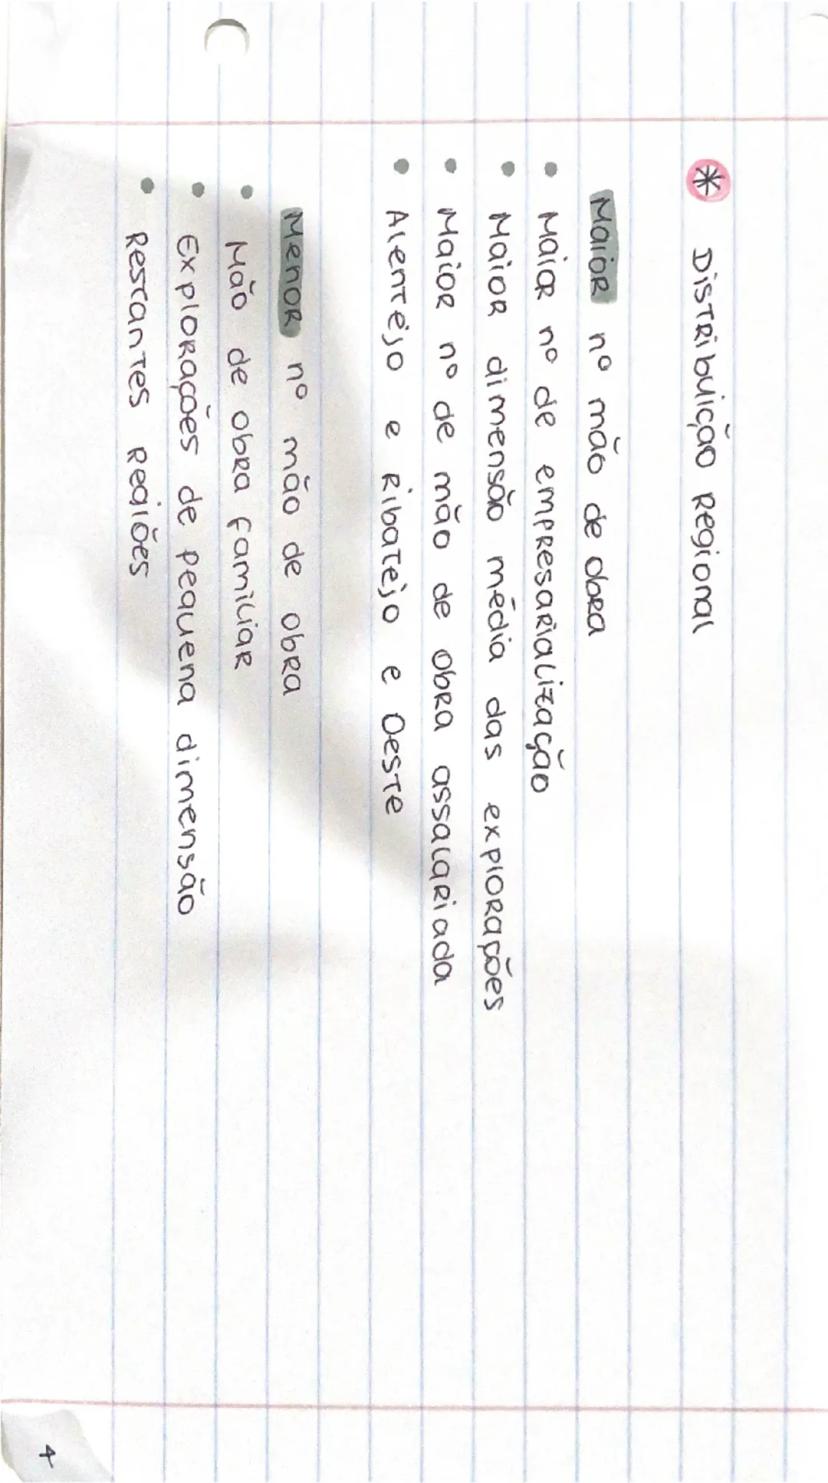 * Distribuição Regional
Maior nº mão de obra
• Maior nº de empresarialização
• Maior dimensão média das explorações
• Maior nº de mão de obra assalariada
• Alentejo e Ribatejo e Oeste
Menor nº mão de obra
• Mão de obra familiar
• Explorações de pequena dimensão
• Restantes regiões
4